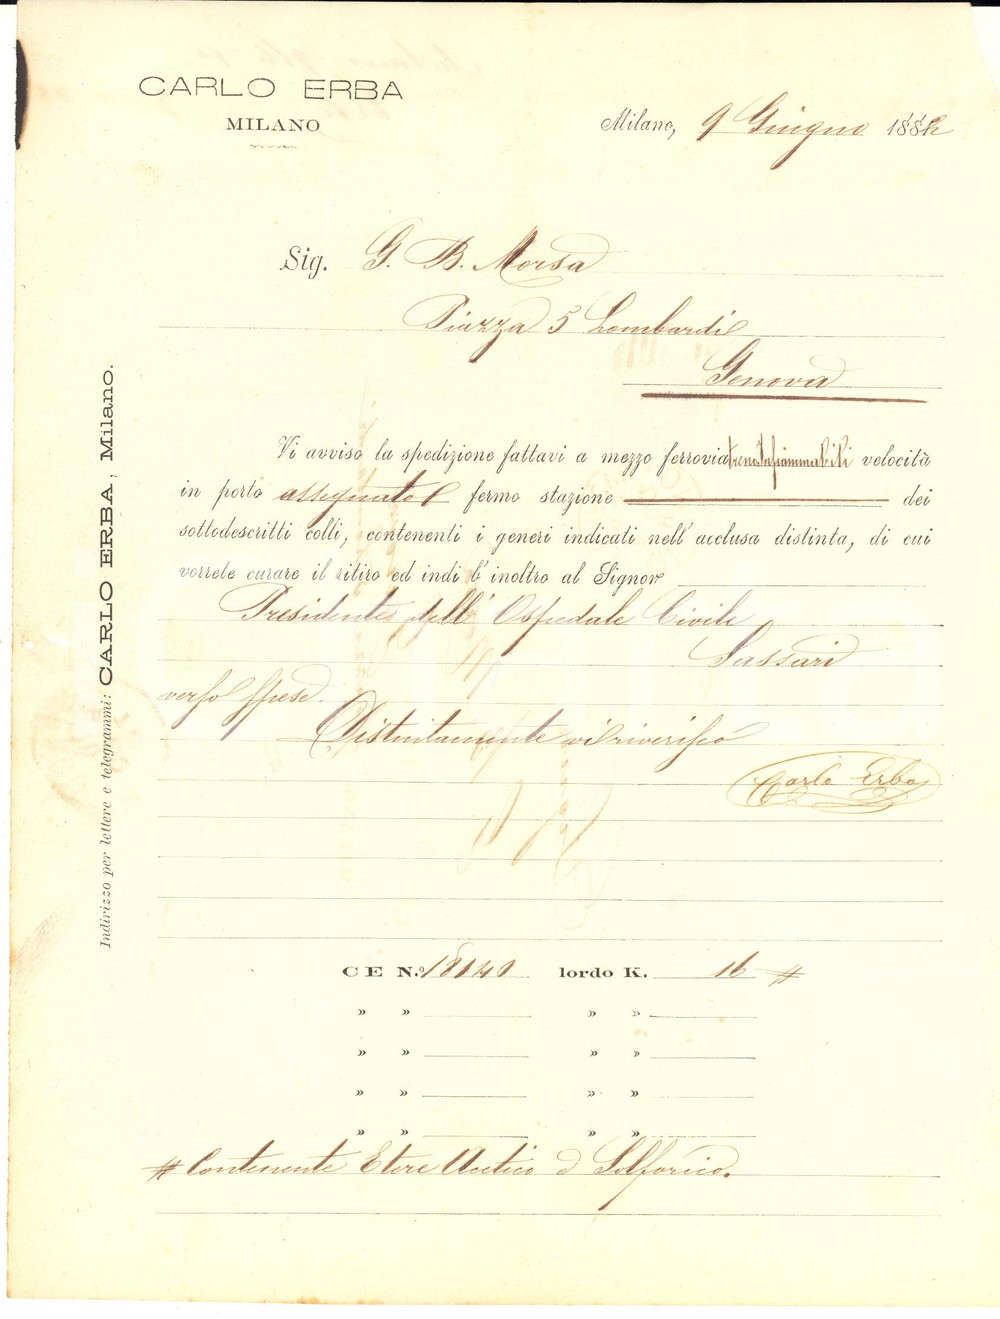 CARLO ERBA
MILANO
Milano, 9 Giugno 1882
Sig. G. B. Morsa
Piazza 5 Lombardi
Genova
Vi avviso la spedizione fattavi a mezzo ferrovia treno Infiammabili velocità
in porto assegnato fermo stazione dei
sottodescritti colli, contenenti i generi indicati nell'acclusa distinta, di cui
vorrete curare il ritiro ed indi l'inoltro al Signor
Presidente dell'Ospedale Civile
Sassari
verso spese.
Distintamente vi riverisco
Carlo Erba
Indirizzo per lettere e telegrammi: CARLO ERBA, Milano.
C E N.o 18140 lordo K. 16 #
» » » »
» » » »
» » » »
» » » »
# Contenente Etere Acetico d Solforico.